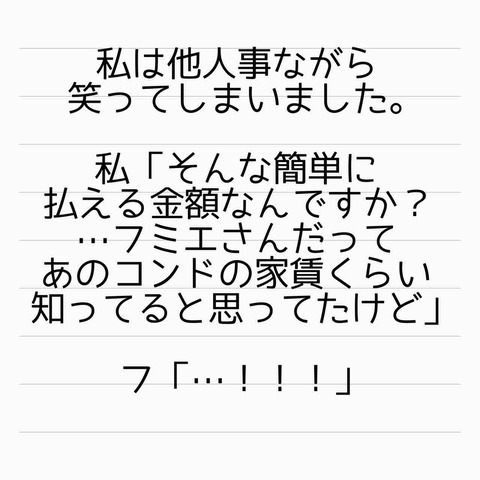 私は他人事ながら
笑ってしまいました。
私「そんな簡単に
払える金額なんですか？
…フミエさんだって
あのコンドの家賃くらい
知ってると思ってたけど」
フ「…！！！」